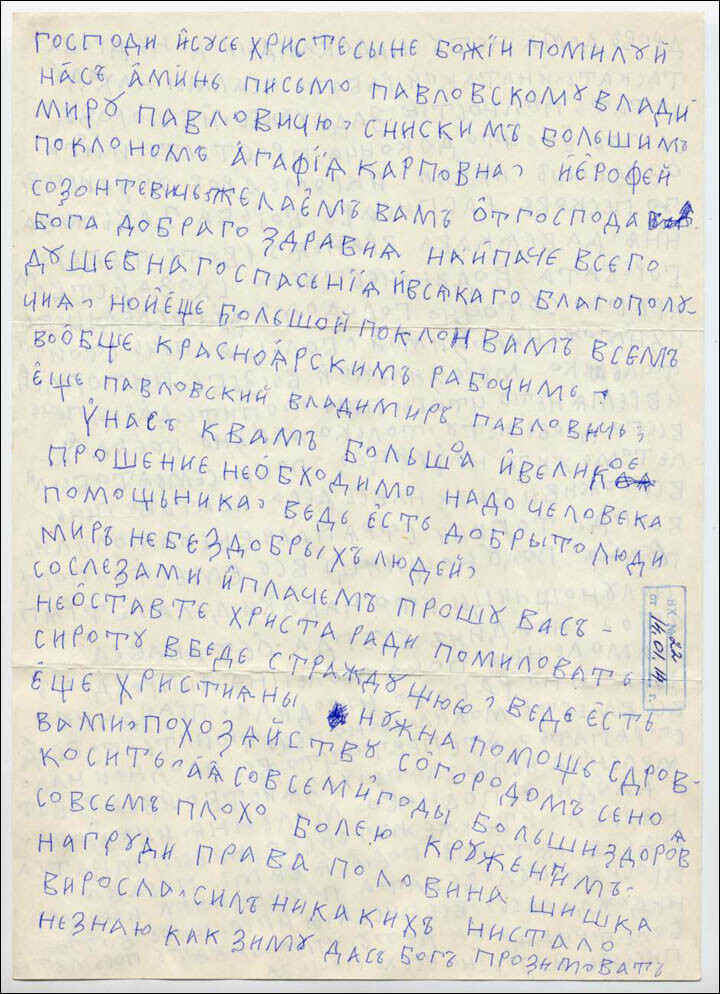 ГОСПОДИ ЙСУСЕ ХРИСТЕ СЫНЕ БОЖІИ ПОМИЛУЙ
НА́СЪ А́МИ́НЬ ПИСЬМО ПАВЛОВСКОМУ ВЛАДИ
МИРУ ПАВЛОВИЧЮ, СНИСКИМЪ БОЛЬШИМЪ
ПОКЛОНОМЪ А́ГАФІѦ КАРПОВНА, ЙЕ́РОФЕЙ
СОЗОНТЕВИЧЬ, ЖЕЛАЕМЪ ВАМЪ О́Т ГОСПОДА
БОГА ДОБРАГО ЗДРАВИѦ НАЙПАЧЕ ВСЕГО
ДУШЕВНАГО СПАСЬНІѦ ЙВСѦКАГО БЛАГОПОЛУ-
ЧИѦ, НОЙЕ́ЩЕ БОЛЬШОЙ ПОКЛОН ВАМЪ ВСЕМЪ
ВОО́БЩЕ КРАСНОѦРСКИМЪ РАБОЧИМЪ,
Е́ЩЕ ПАВЛОВСКИЙ ВЛАДИМИРЪ ПАВЛОВИЧЬ,
У́НАСЪ КВАМЪ БОЛЬШОА ЙВЕЛИКОЕ
ПРОШЕНИЕ НЕО́БХОДИМО НАДО ЧЕЛОВЕКА
ПОМОЩЬНИКА, ВЕДЬ Е́СТЬ ДОБРЫТО ЛЮДИ
МИРЪ НЕБЕЗДОБРЫХЪ ЛЮДЕЙ,
СОСЛЕЗАМИ ЙПЛАЧЕМЪ ПРОШУ ВАСЪ -
НЕО́СТАВТЕ ХРИСТА РАДИ ПОМИЛОВАТЬ
СИРОТУ ВБЕДЕ СТРАЖДУЩЮЮ, ВЕДЕ Е́СТЬ
Е́ЩЕ ХРИСТИАНЫ НУЖНА ПОМОЩЬ СДРОВ-
ВАМИ, ПОХОЗѦЙСТВУ СО́ГОРОДОМЪ СЕНО
КОСИТЬ, АѦ СОВСЕМ ЙГОДЫ БОЛЬШИ ЗДОРОВѦ
СОВСЕМЪ ПЛОХО БОЛЕЮ КРУЖЕНИМЪ,
НАГРУДИ ПРАВА ПОЛОВИНА ШИШКА
ВИРОСЛА, СИЛЪ НИКАКИХЪ НИСТАЛО
НЕЗНАЮ КАК ЗИМУ ДАСЬ БОГЪ ПРОЗИМОВАТЬ
ВХ. № 22
от 16.01.14 г.